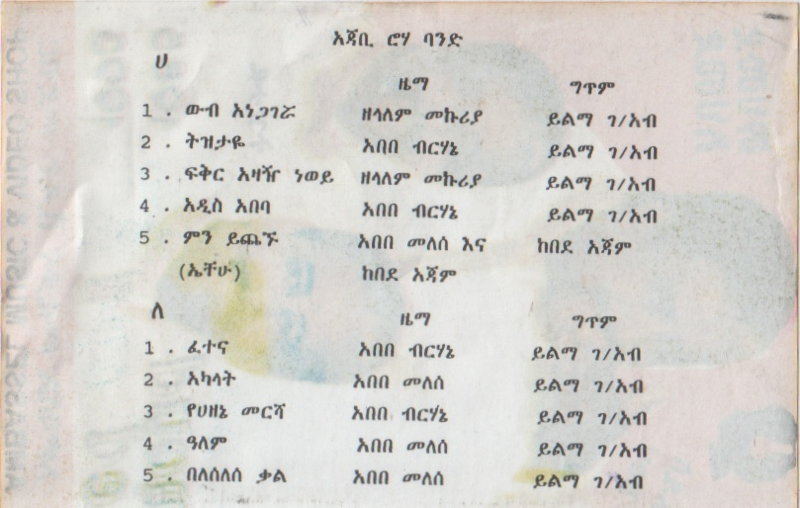 አጃቢ ሮሃ ባንድ
ሀ
ዜማ ግጥም
1 . ውብ አነጋገሯ ዘላለም መኩሪያ ይልማ ገ/አብ
2 . ትዝታዬ አበበ ብርሃኔ ይልማ ገ/አብ
3 . ፍቅር አዛዥ ነወይ ዘላለም መኩሪያ ይልማ ገ/አብ
4 . አዲስ አበባ አበበ ብርሃኔ ይልማ ገ/አብ
5 . ምን ይጨኙ አበበ መለሰ እና ከበደ አጃም
(ኤቸሁ) ከበደ አጃም
ለ
ዜማ ግጥም
1 . ፈተና አበበ ብርሃኔ ይልማ ገ/አብ
2 . አካላት አበበ መለሰ ይልማ ገ/አብ
3 . የሀዘኔ መርሻ አበበ ብርሃኔ ይልማ ገ/አብ
4 . ዓለም አበበ መለሰ ይልማ ገ/አብ
5 . በለሰለሰ ቃል አበበ መለሰ ይልማ ገ/አብ
AMBASSEL MUSIC & VIDEO SHOP